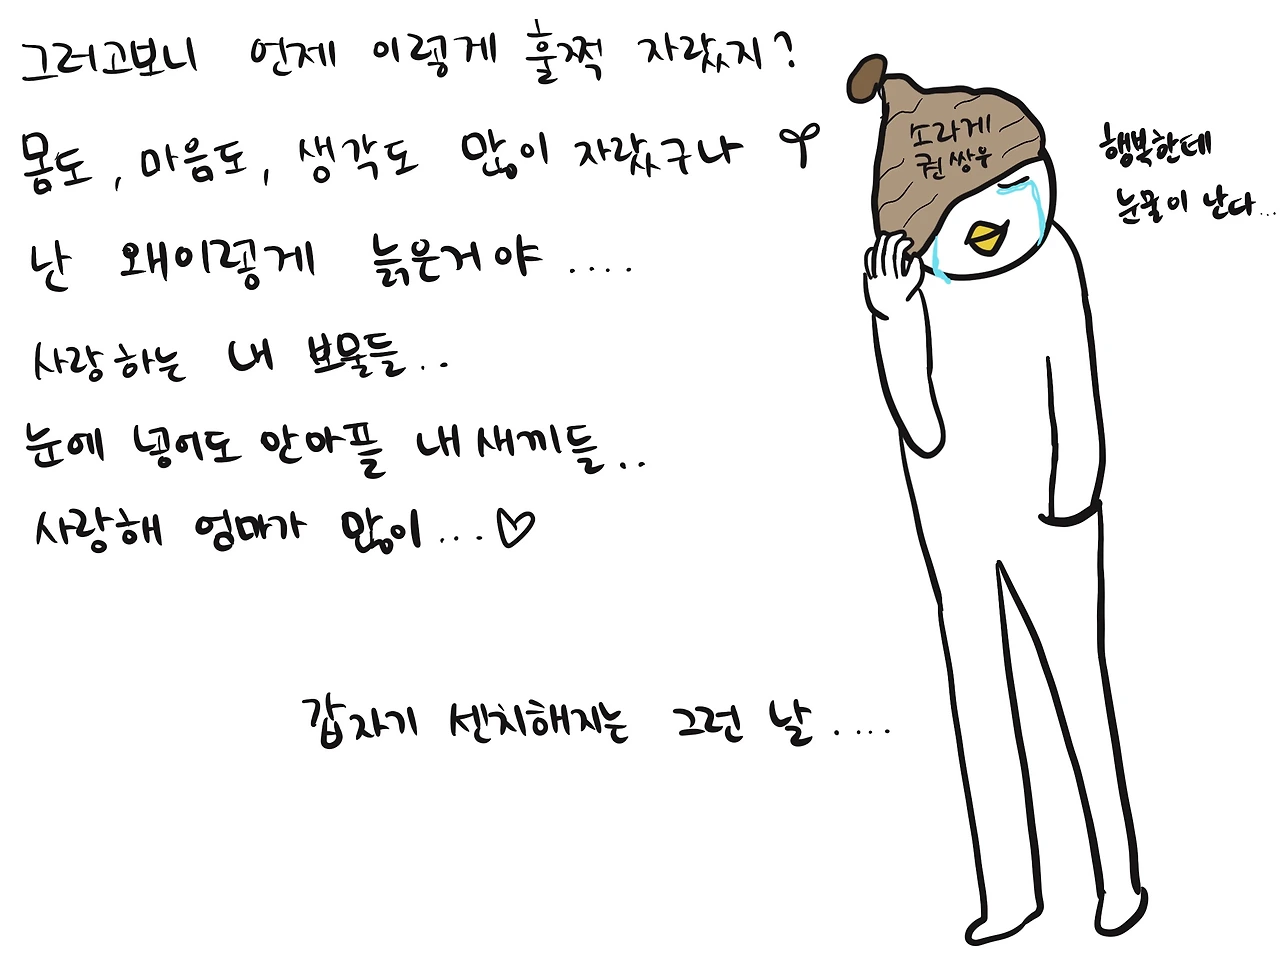 그러고보니 언제 이렇게 훌쩍 자랐지?
몸도, 마음도, 생각도 많이 자랐구나
난 왜이렇게 늙은거야....
사랑하는 내 보물들..
눈에 넣어도 안아플 내새끼들..
사랑해 엄마가 많이...♡
갑자기 센치해지는 그런 날....
소라게
권쌍우
행복한데
눈물이 난다...